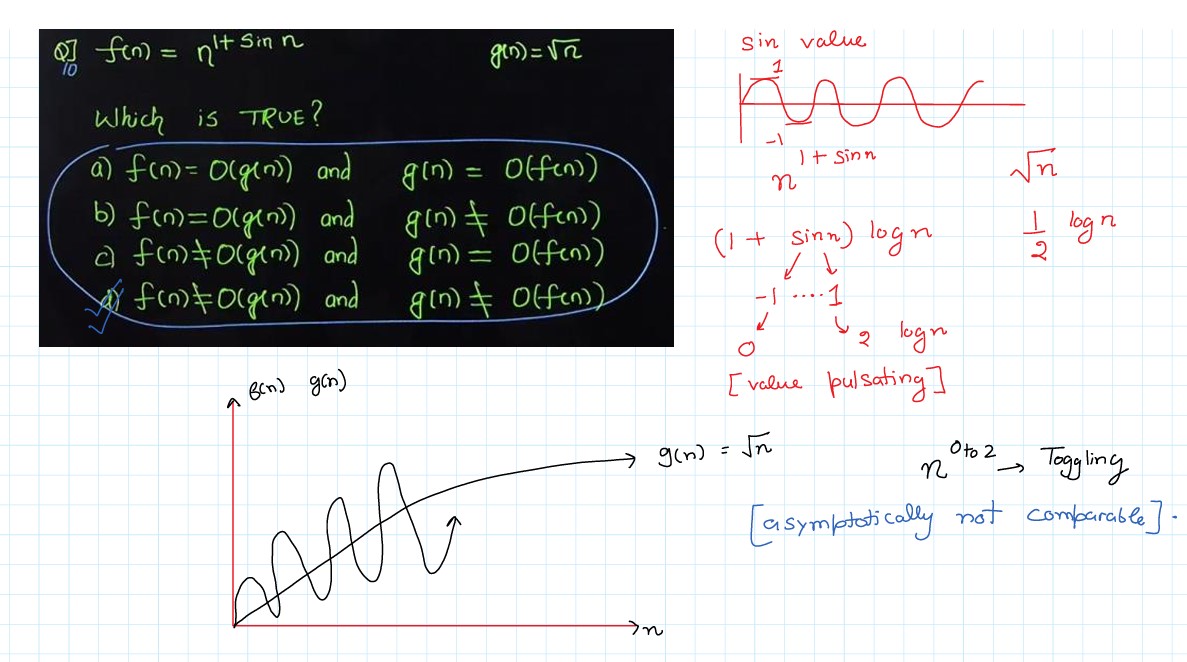 Q] f(n) = n^{1+ Sin n} g(n)=√n
10
Which is TRUE?
a) f(n)= O(g(n)) and g(n) = O(f(n))
b) f(n)=O(g(n)) and g(n) ≠ O(f(n))
c) f(n)≠O(g(n)) and g(n) = O(f(n))
d) f(n)≠O(g(n)) and g(n) ≠ O(f(n))
sin value
1
-1
n^{1 + sinn} √n
(1 + sinn) log n 1/2 log n
-1 ....1
0 2 log n
[value pulsating]
f(n) g(n)
g(n) = √n
n
n^{0 to 2} → Toggling
[asymptotically not comparable].